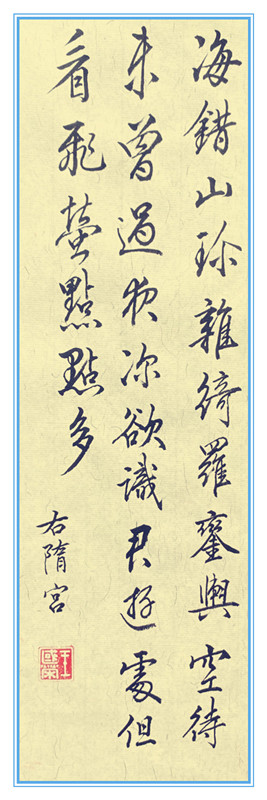 海錯山珍雜綺羅鑾輿空待
未曾過夜深欲識君遊處但
看飛螢點點多
右隋宮